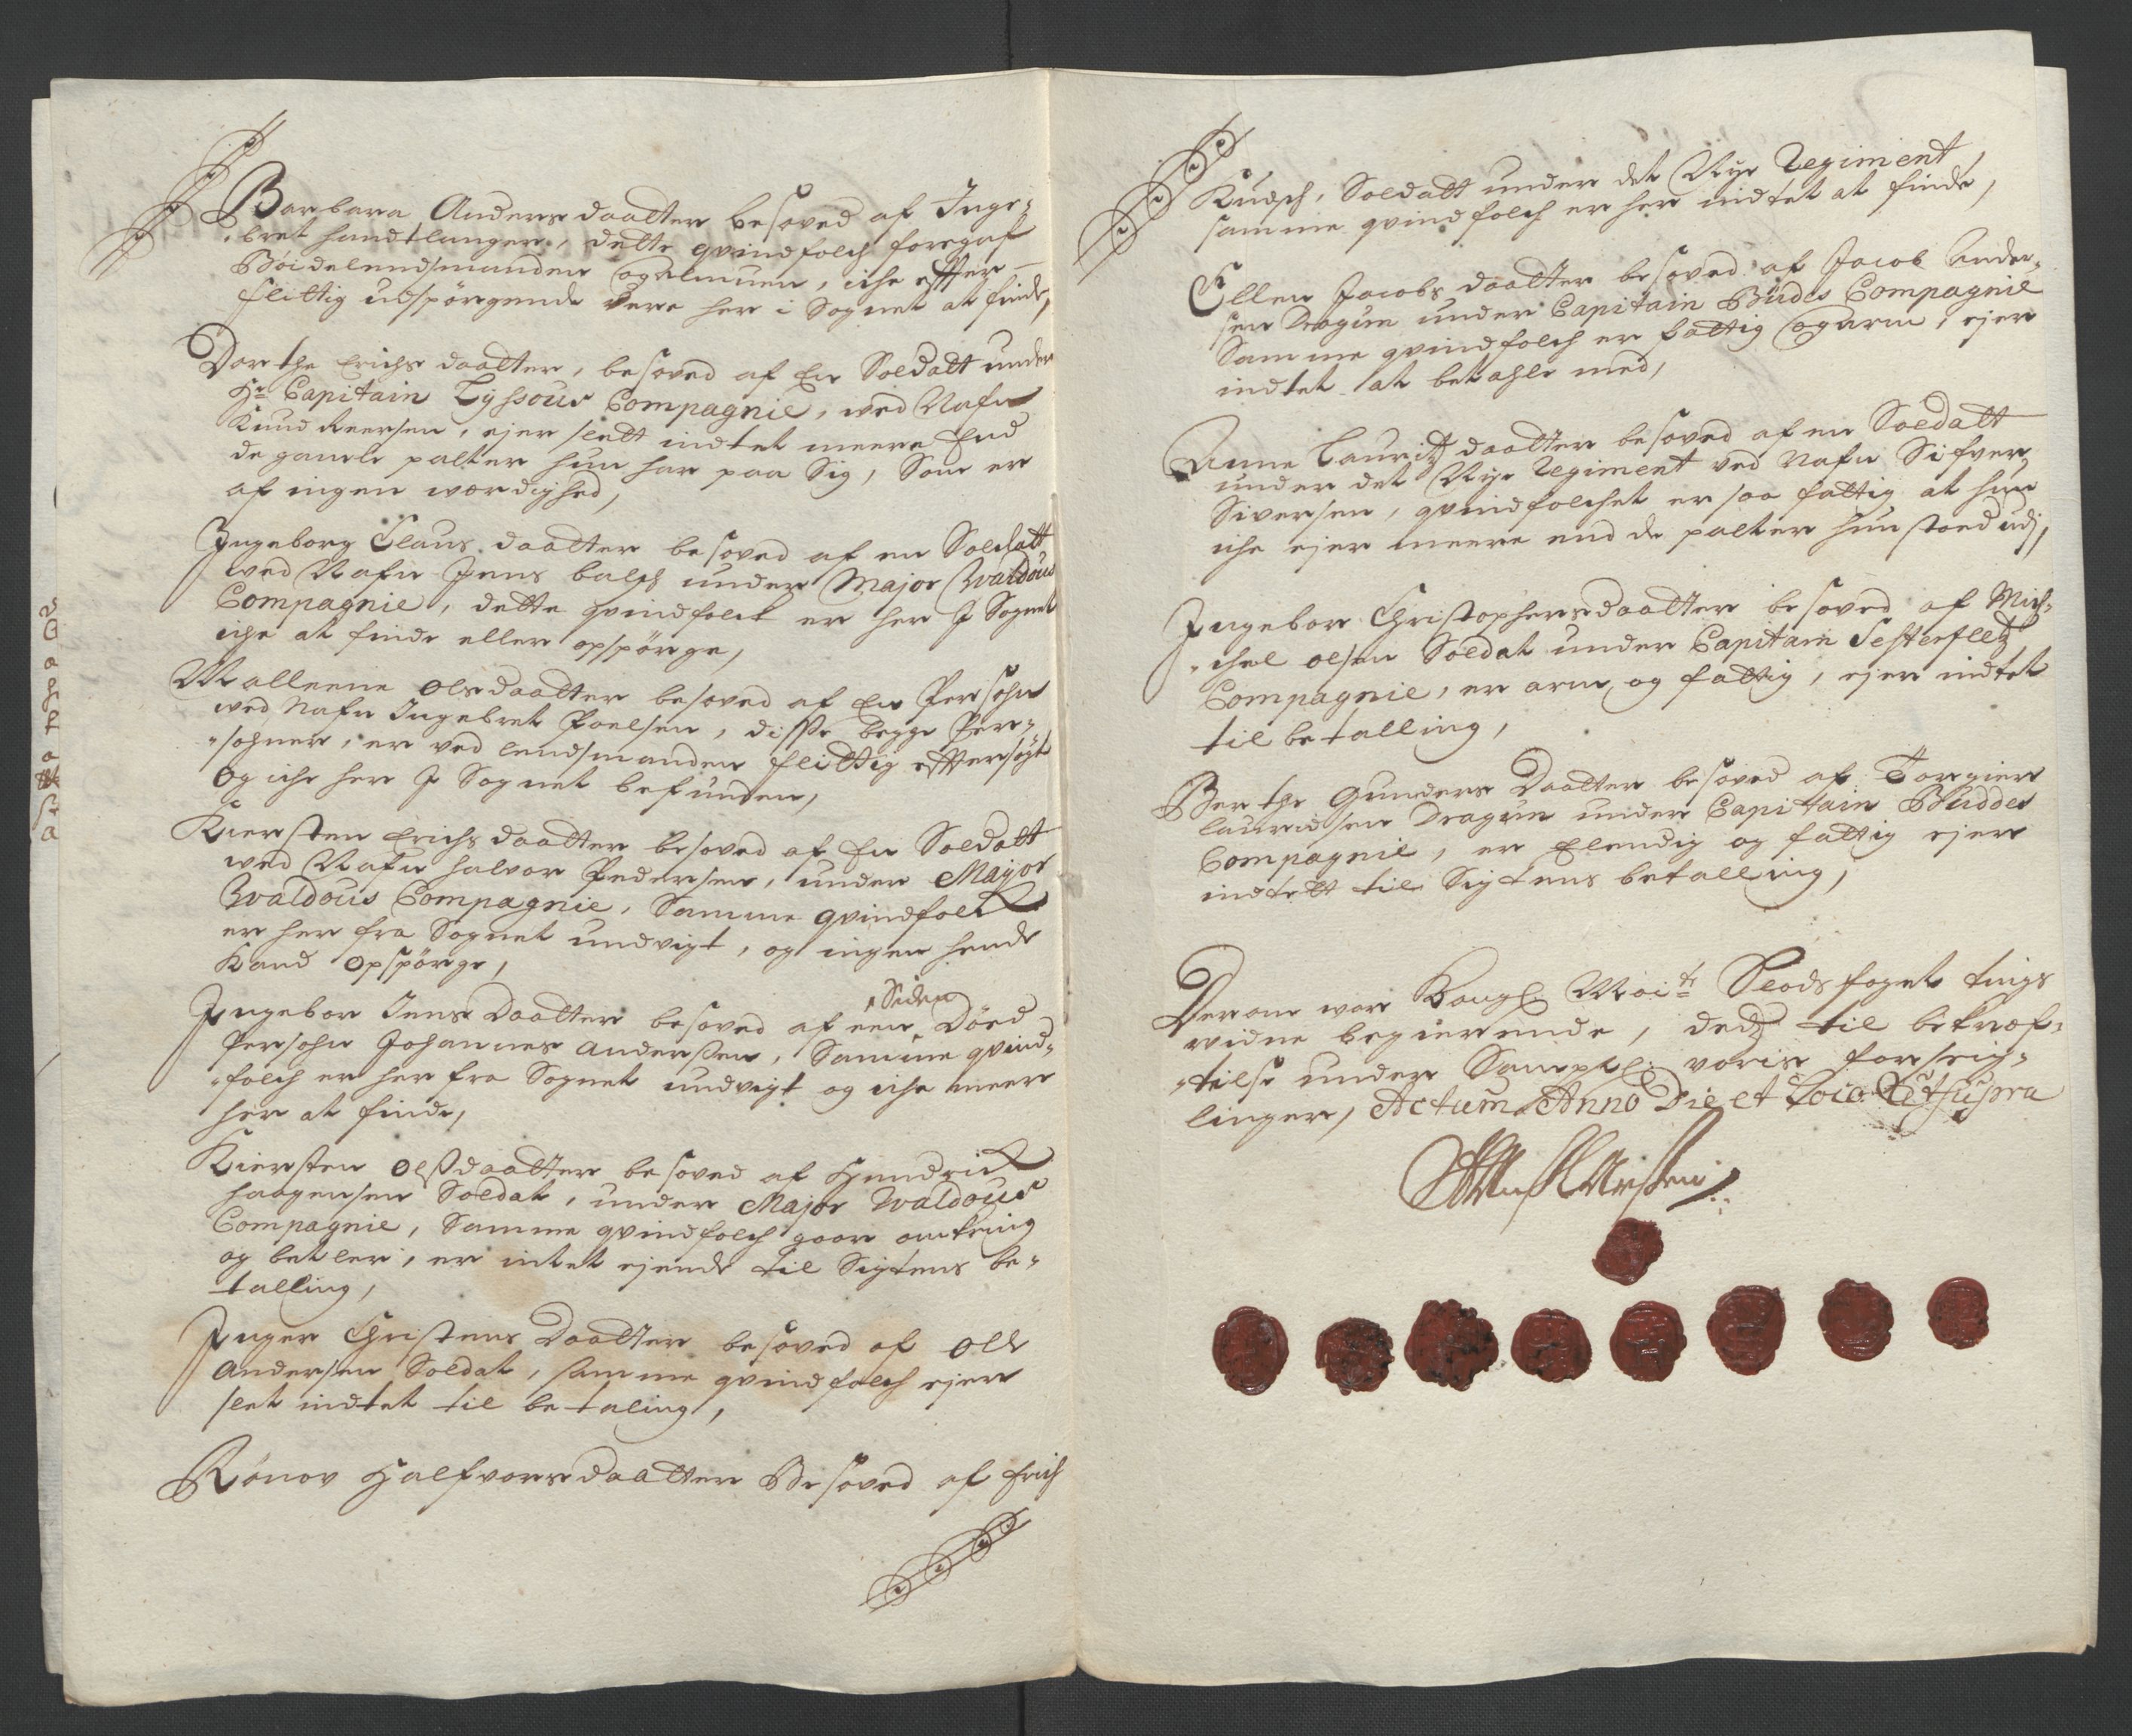 Barbara Anders daatter besoved af Inge-
bret handtlanger, dette qvindfolch foregaf
Böidelendsmanden og almuen, iche effter
flittig udspörgende vere her i Sognet at finde,
Dorthe Erichs daatter, besoved af En Soldatt under
Hr Capitain Lyssous Compagnie, ved Nafn
Knud Reersen, ejer slett indtet meere End
de gamle palter hun har paa Sig, Som er
af ingen wærdighed,
Ingeborg Claus daatter besoved af en Soldatt
ved Nafn Jens balch under Major Waldous
Compagnie, dette qvindfolck er her I Sognet
iche at finde eller opspörge,
Malleene Olsdaatter besoved af En Persohn
ved Nafn Ingebret Poelsen, disse begge Per-
sohner, er ved lendsmanden flittig efftersögt
og iche her I Sognet befunden,
Kiersten Erichs daatter besoved af En Soldatt
ved Nafn halvor Pedersen, under Major
Waldous Compagnie, Samme qvindfolck
er her fra Sognet undvigt, og ingen hende
Kand opspörge,
Ingebor Jens Daatter besoved af een Siden Döed
Persohn Johannes Anderssen, Samme qvind-
folch er her fra Sognet undvigt og iche meer
her at finde,
Kiersten Olssdaatter besoved af Hendrick
haagensen Soldat, under Major Waldous
Compagnie, Samme qvindfolch gaar omkring
og betler, er intet ejende til Sigtens be-
talling,
Inger Christens Daatter besoved af Ole
Andersen Soldat, samme qvindfolch ejer
slet indtet til betaling,
Rönov Halfvorsdaatter Besoved af Erich
Knudsh, Soldatt under det Nye Regiment
samme qvindfolch er her indtet at finde,
Ellen Jacobs daatter besoved af Jacob Ander-
sen Dragun under Capitain Budes Compagnie
Samme qvindfolch er fattig og arm, ejer
indtet at betahle med,
Anne Lauritz daatter besoved af en Soldatt
under det Nye Regiment ved Nafn Sifver
Siversen, qvindfolchet er saa fattig at hun
iche ejer meere end de palter hun stoed udj,
Ingebor Christophersdaatter besoved af Mich-
chel olsen Soldat under Capitain Sesterfletz
Compagnie, er arm og fattig, ejer indtet
til betalling,
Berthe Gunders Daatter besoved af Torgier
lauridsen Dragun under Capitain Buddes
Compagnie, er Elendig og fattig ejer
indtett til Sigtens betalling,
Derom war Kongl: Mai:ts foget tings
widne begierende, dedz til bekræf-
telse under Samptl: voris forseig-
linger, Actum Anno Die et Loco Ut supra